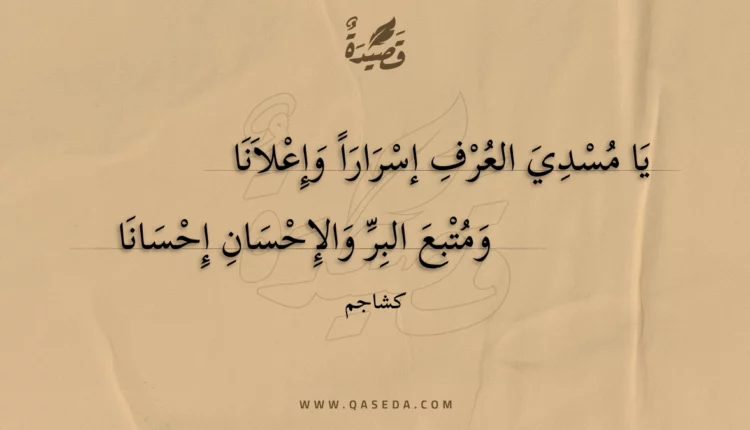 قَصِيدَةٌ
يَا مُسْدِيَ العُرْفِ إسْرَارَاً وَإِعْلاَنَا
وَمُتْبِعَ البِرِّ وَالإِحْسَانِ إِحْسَانَا
كشاجم
WWW.QASEDA.COM